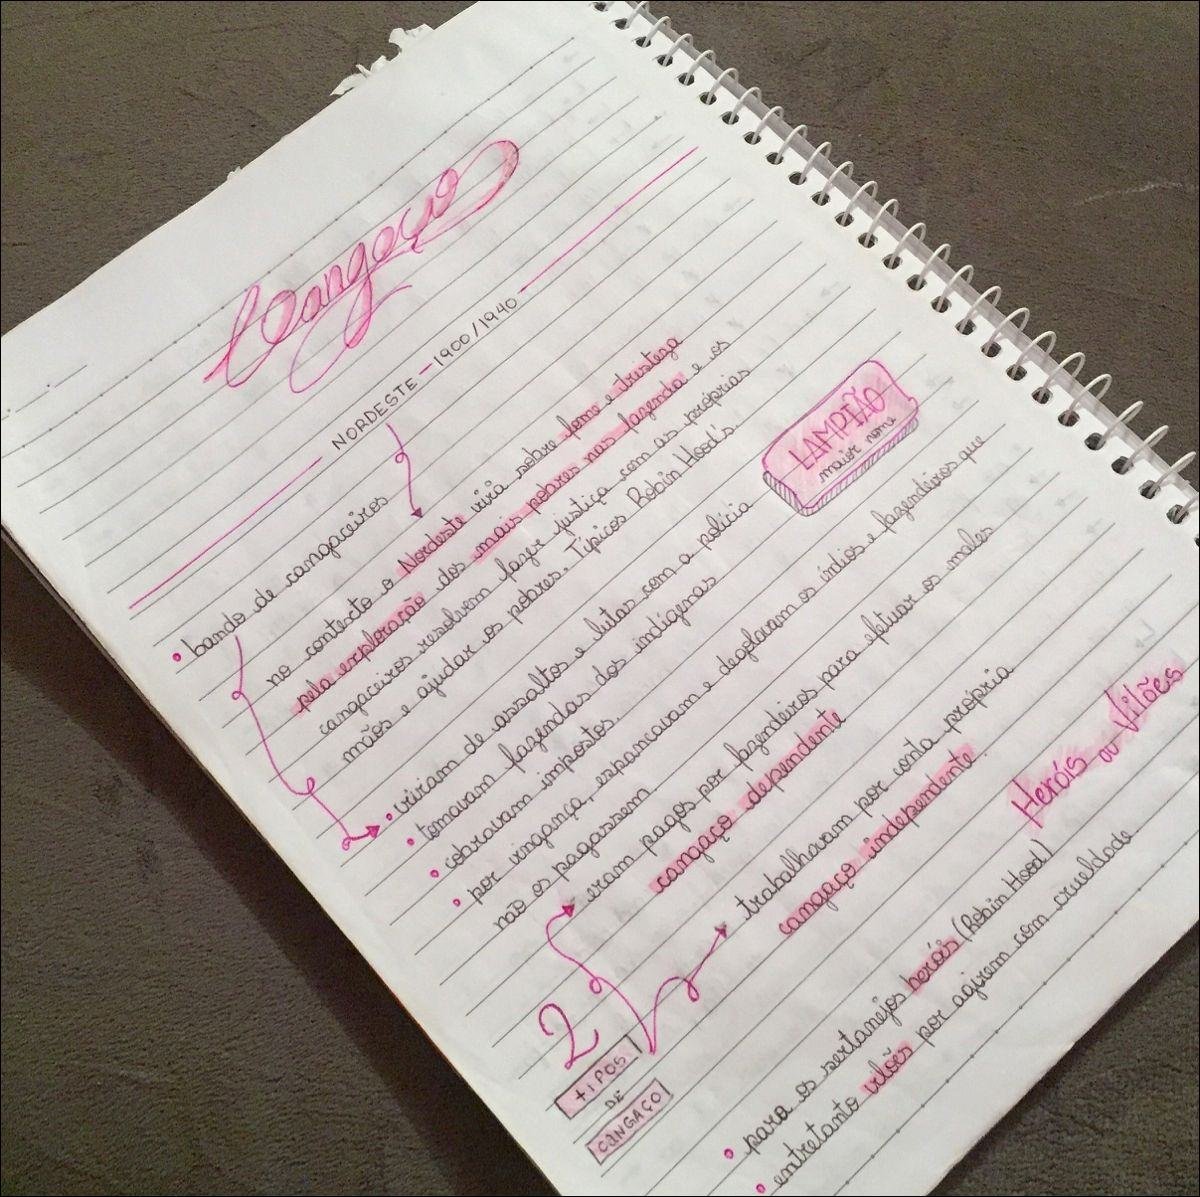 Cangaço
NORDESTE - 1900/1940
• bando de cangaceiros
no contexto o Nordeste vivia sobre fome e tristeza
pela exploração dos mais pobres nas fazenda e os
cangaceiros resolvem fazer justiça com as próprias
mãos e ajudar os pobres. Típicos Robin Hood's.
LAMPIÃO
maior nome
• viviam de assaltos e lutas com a polícia
• tomavam fazendas dos indígenas
• cobravam impostos.
• por vingança, espancavam e degolavam os índios e fazendeiros que
não os pagassem
2
TIPOS
DE
CANGAÇO
eram pagos por fazendeiros para efetuar os males
cangaço dependente
trabalhavam por conta própria
cangaço independente.
Heróis ou Vilões
• para os sertanejos heróis (Robin Hood)
• entretanto vilões por agirem com crueldade